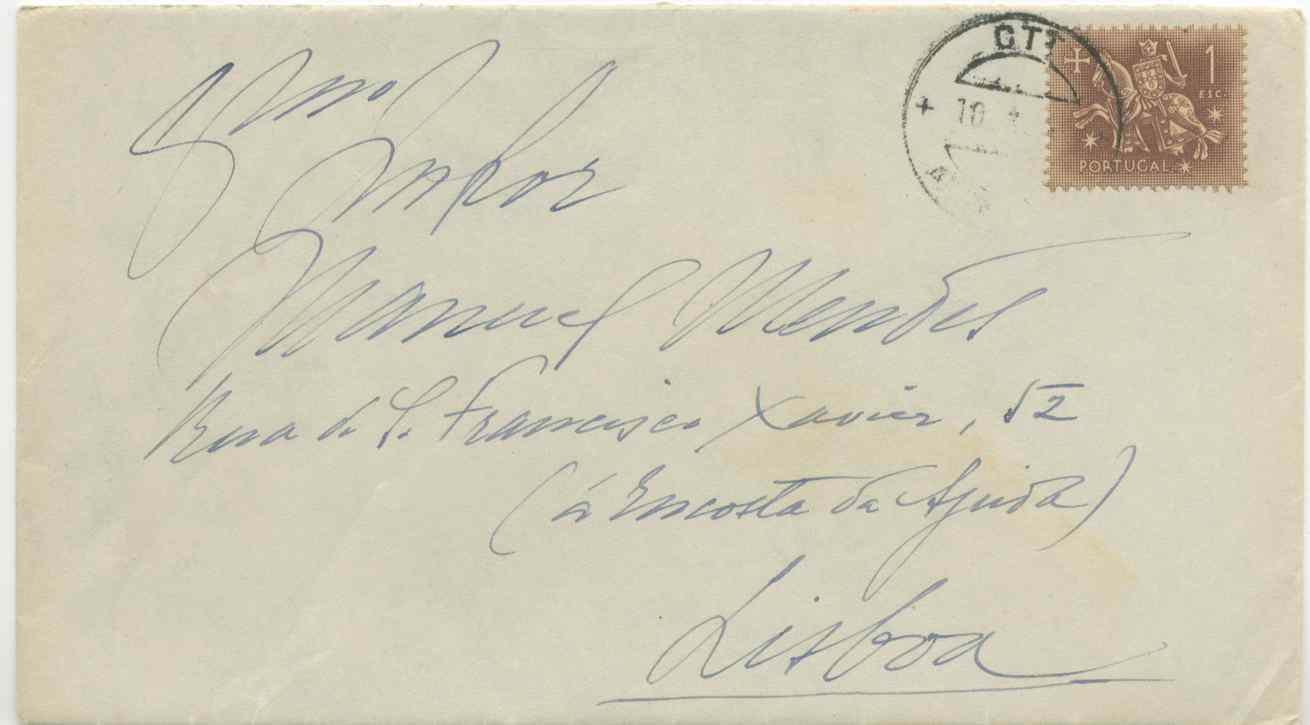 CTT
10
1
ESC.
PORTUGAL
Exmo
Senhor
Manuel Mendes
Rua de S. Francisco Xavier, 52
(á Encosta da Ajuda)
Lisboa